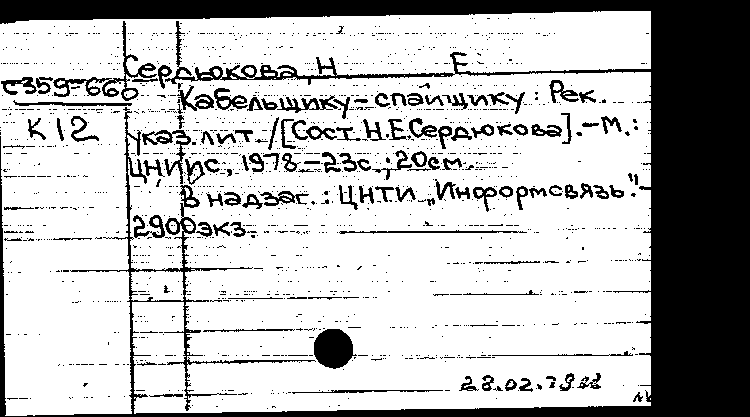 Сердюкова, Н Е
С359-660
Кабельщику-спайщику: Рек.
К 12
указ. лит. /[Сост. Н.Е.Сердюкова].-М.:
ЦНИИС, 1978.-23с.; 20см.
В надзаг.: ЦНТИ „Информсвязь".-
2900экз.
28.02.